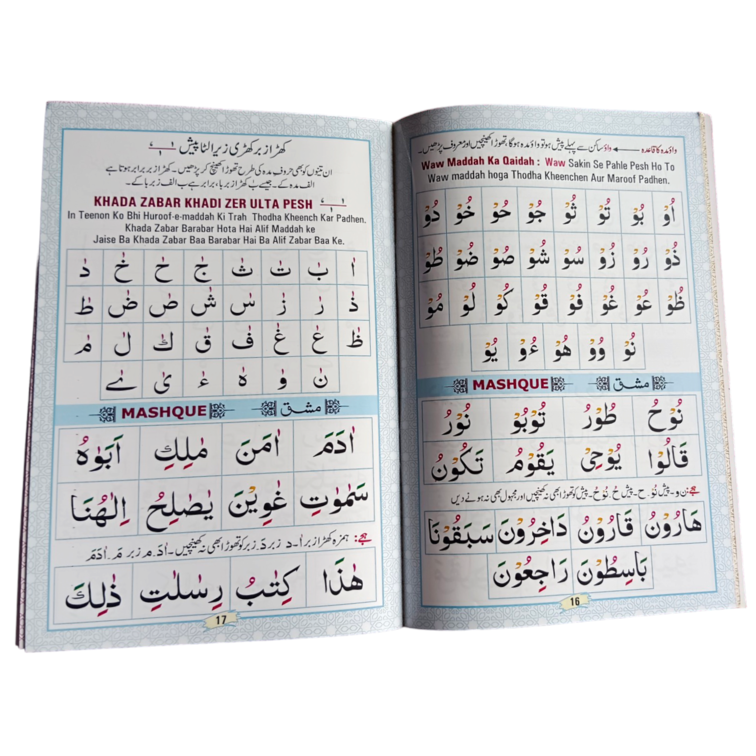 واؤ مدہ کا قاعدہ واؤ ساکن سے پہلے پیش ہو تو واؤ مدہ ہوگا، تھوڑا کھینچیں اور معروف پڑھیں۔
Waw Maddah Ka Qaidah : Waw Sakin Se Pahle Pesh Ho To
Waw maddah hoga Thodha Kheenchen Aur Maroof Padhen.
اُوْ بُوْ تُوْ ثُوْ جُوْ حُوْ خُوْ دُوْ
ذُوْ رُوْ زُوْ سُوْ شُوْ صُوْ ضُوْ طُوْ
ظُوْ عُوْ غُوْ فُوْ قُوْ كُوْ لُوْ مُوْ
نُوْ وُوْ هُوْ ءُوْ يُوْ
MASHQUE مشق
نُوْحُ طُوْرُ تُوْبُوْ نُوْرُ
قَالُوْا يُوْحِيْ يَقُوْمُ تَكُوْنُ
ہجے: ن و۔ پیش نُوْ۔ ح۔ پیش حُ۔ نُوْحُ۔ پیش کو تھوڑا بھی نہ کھینچیں اور مجہول بھی نہ ہونے دیں
هَارُوْنَ قَارُوْنَ دَاخِرُوْنَ سَبَقُوْنَا
بَاسِطُوْنَ رَاجِعُوْنَ
16
کھڑا زبر کھڑی زیر الٹا پیش
ان تینوں کو بھی حروف مدہ کی طرح تھوڑا کھینچ کر پڑھیں۔ کھڑا زبر برابر ہوتا ہے
الف مدہ کے۔ جیسے بٰ کھڑا زبر با، برابر ہے با الف زبر با کے۔
KHADA ZABAR KHADI ZER ULTA PESH
In Teenon Ko Bhi Huroof-e-maddah Ki Trah Thodha Kheench Kar Padhen.
Khada Zabar Barabar Hota Hai Alif Maddah ke
Jaise Ba Khada Zabar Baa Barabar Hai Ba Alif Zabar Baa Ke.
اٰ بٰ تٰ ثٰ جٰ حٰ خٰ دٰ
ذٰ رٰ زٰ سٰ شٰ صٰ ضٰ طٰ
ظٰ عٰ غٰ فٰ قٰ كٰ لٰ مٰ
نٰ وٰ هٰ ءٰ ىٰ ےٰ
MASHQUE مشق
اٰدَمَ اٰمَنَ مٰلِكِ اَبَوٰهُ
سَمٰوٰتِ غٰوِيْنَ يٰصٰلِحُ اِلٰهُنَا
ہجے: ہمزہ کھڑا زبر اٰ۔ د زبر دَ، زبر کو تھوڑا بھی نہ کھینچیں۔ اٰدَ۔ م زبر مَ۔ اٰدَمَ
هٰذَا كِتٰبُ رِسٰلٰتِ ذٰلِكَ
17